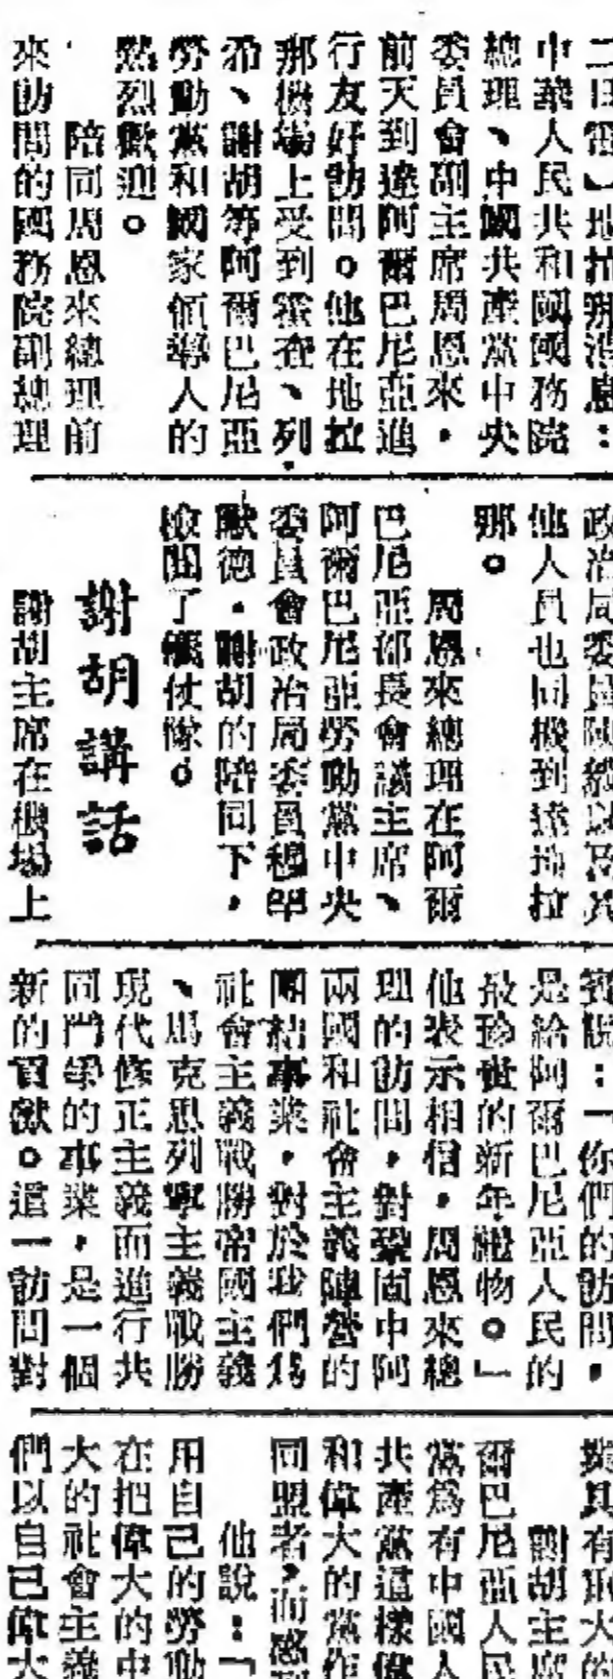 二日電】地拉那消息：
中華人民共和國國務院
總理、中國共產黨中央
委員會副主席周恩來，
前天到達阿爾巴尼亞進
行友好訪問。他在地拉
那機場上受到霍查、列
希、謝胡等阿爾巴尼亞
勞動黨和國家領導人的
熱烈歡迎。
陪同周恩來總理前
來訪問的國務院副總理
政治局委員以及其
他人員也同機到達地拉
那。
周恩來總理在阿爾
巴尼亞部長會議主席、
阿爾巴尼亞勞動黨中央
委員會政治局委員穆罕
默德·謝胡的陪同下，
檢閱了儀仗隊。
謝胡講話
謝胡主席在機場上
說：「你們的訪問，
是給阿爾巴尼亞人民的
最珍貴的新年禮物。」
他表示相信，周恩來總
理的訪問，對鞏固中阿
兩國和社會主義陣營的
團結事業，對於我們為
社會主義戰勝帝國主義
、馬克思列寧主義戰勝
現代修正主義而進行共
同鬥爭的事業，是一個
新的貢獻。這一訪問對
具有大的
謝胡主席
爾巴尼亞人民
黨為有中國人
共產黨這樣偉
和偉大的黨作
同盟者，而感到
他說：「
用自己的勞動
在把偉大的中
大的社會主義
們以自己偉大